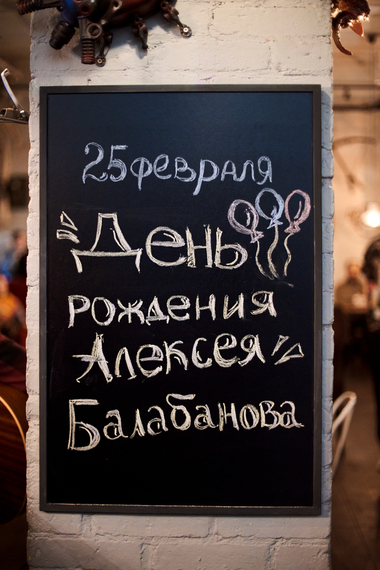 25 февраля
День
рождения
Алексея
Балабанова